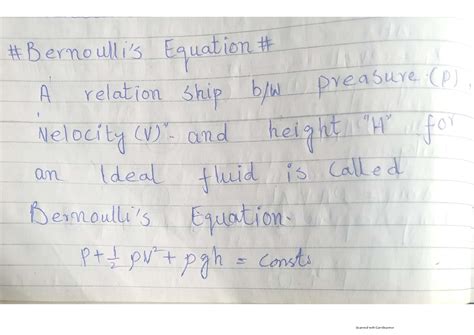 # Bernoulli's Equation #
A relation ship b/w preasure (P),
Velocity (V)" and height "H" for
an Ideal fluid is called
Bernoulli's Equation.
P + 1/2 ρv² + ρgh = consts
Scanned with CamScanner